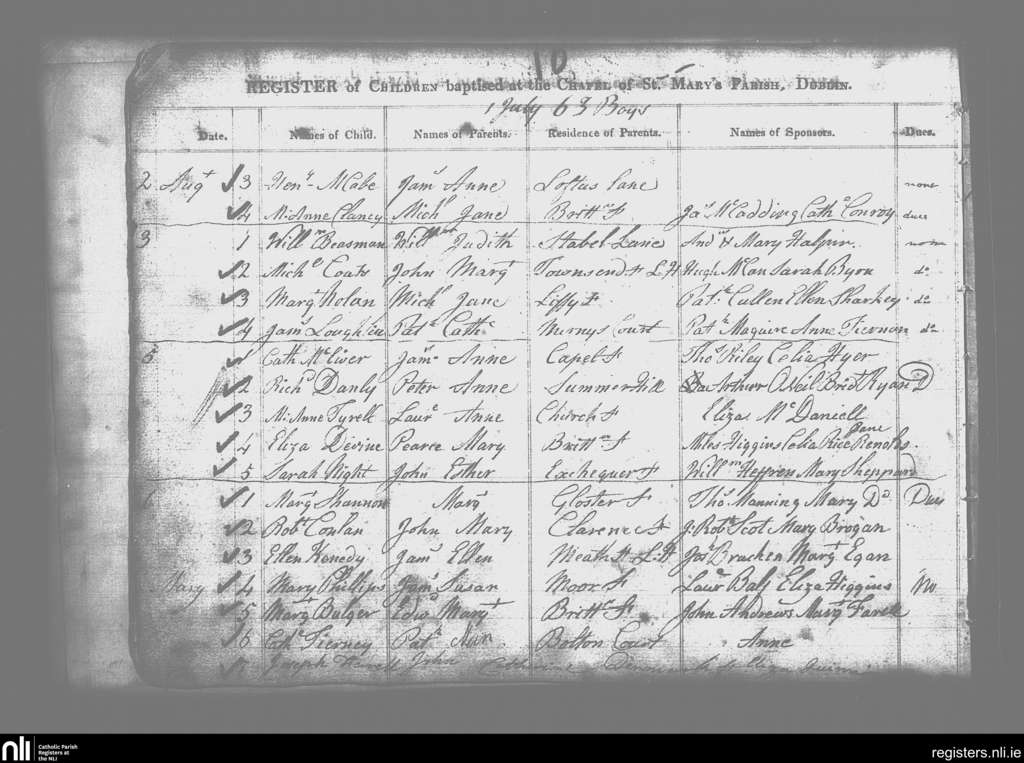 10
REGISTER of CHILDREN baptised at the CHAPEL of ST. MARY'S PARISH, DUBLIN.
1 July 63 Boys
Date. Names of Child. Names of Parents. Residence of Parents. Names of Sponsors. Dues.
2 Augt 3 Heny McCabe Jams Anne Loftus Lane none
4 M. Anne Clancy Michl Jane Brittn St Jas McCadding Cathe Conroy dues
3 1 Willm Beasman Willm Judith Stabel Lane Andw & Mary Halpin none
2 Michl Coats John Margt Townsend St L:H Hugh McCan Sarah Byrn do
3 Margt Nolan Michl Jane Liffy St Patk Cullen Ellen Sharkey do
4 Jams Loughlin Patk Cathe Patk Maguire Anne Tiernon do
5 1 Cath McEver Jams Anne Capel St Thos Riley Celia Hyer
2 Richd Danly Peter Anne Summer Hill Arthur ONeil Bridt Ryan D
3 M. Anne Tyrell Laure Anne Church St Eliza McDaniell
4 Eliza Devine Pearce Mary Brittn St Miles Higgins Celia Rice Jane Renolds
5 Sarah Night John Esther Exchequer St Willm Heffron Mary Sheppard
6 1 Margt Shannon Mary Gloster St Thos Manning Mary Do Dues
2 Robt Conlan John Mary Clarence St J. Robt Scot Mary Brogan
3 Ellen Kenedy Jams Ellen Meath St L:H Jos Bracken Margt Egan
Mary 4 Mary Phillips Jams Susan Moor St Laur Balf Eliza Higgins No
5 Margt Bulger Edwd Margt Brittn St John Andrews Margt Farell
6 Cathe Tierney Patk Ann Bolton Court Anne
Joseph John
nli Catholic Parish
Registers at
the NLI
registers.nli.ie